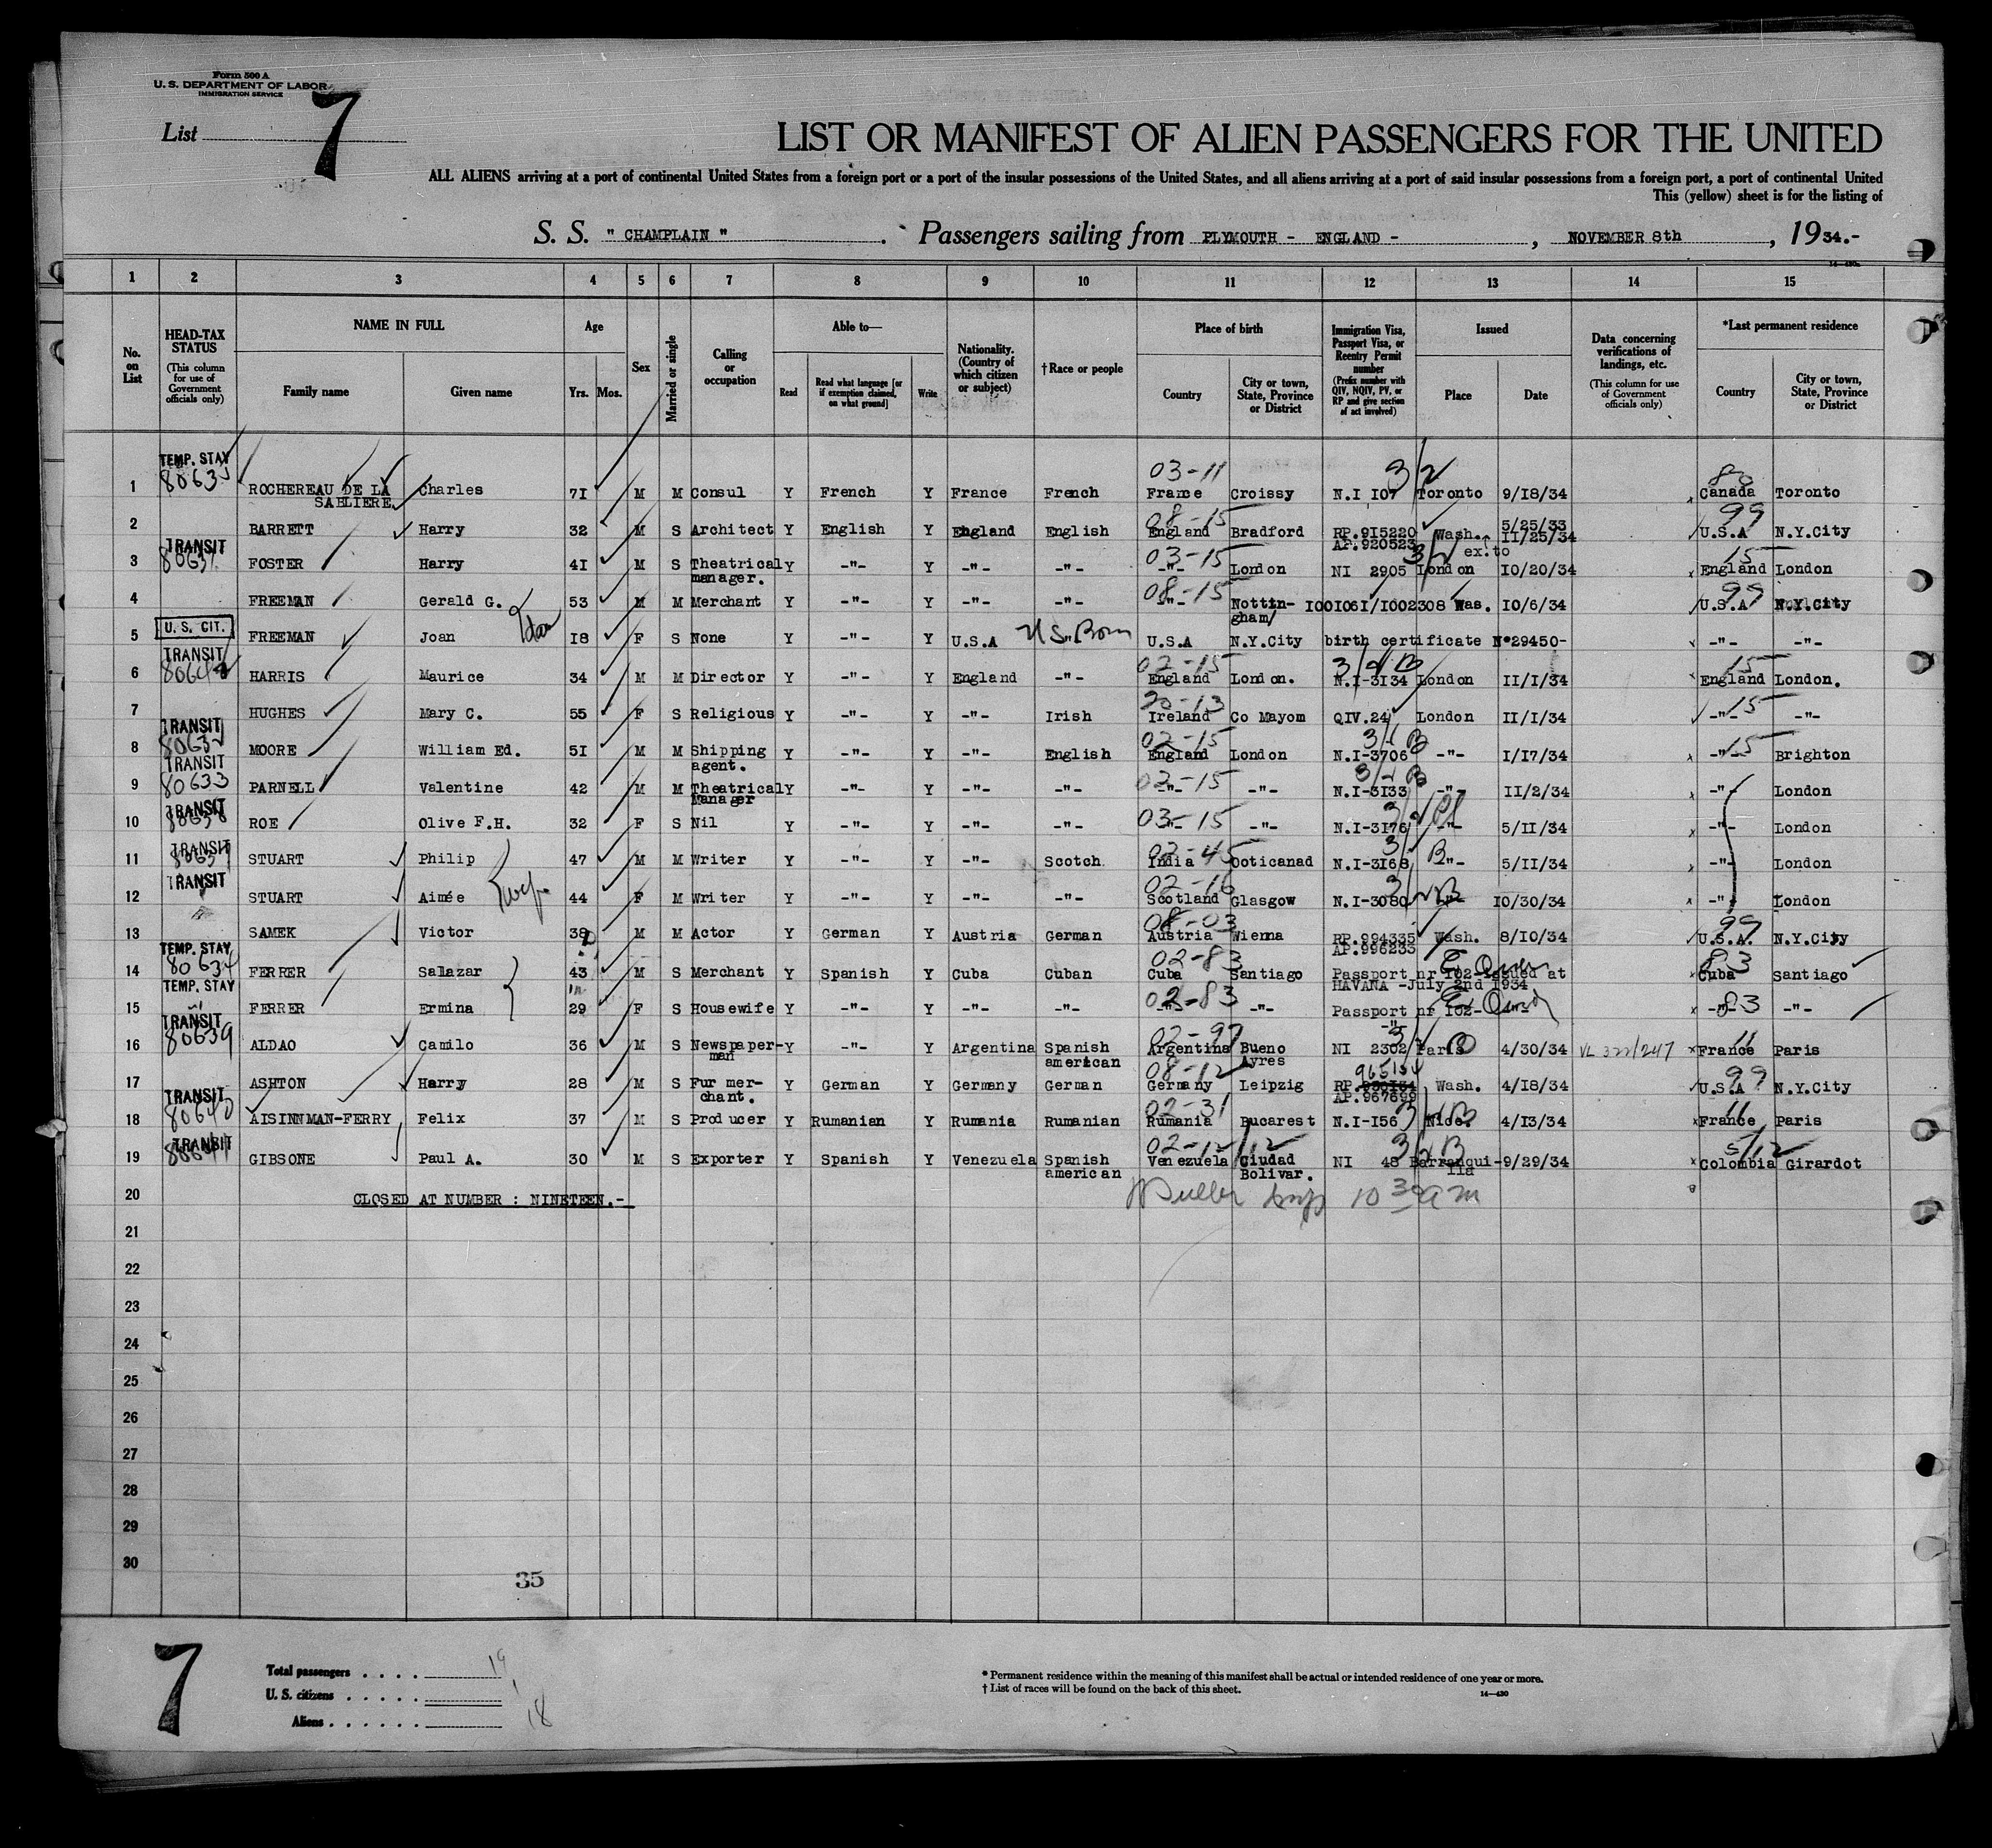 Form 500 A
U. S. DEPARTMENT OF LABOR
IMMIGRATION SERVICE
List 7
LIST OR MANIFEST OF ALIEN PASSENGERS FOR THE UNITED
ALL ALIENS arriving at a port of continental United States from a foreign port or a port of the insular possessions of the United States, and all aliens arriving at a port of said insular possessions from a foreign port, a port of continental United
This (yellow) sheet is for the listing of
S. S. " CHAMPLAIN " . Passengers sailing from PLYMOUTH - ENGLAND - , NOVEMBER 8th , 1934.-
14-430
1 2 3 4 5 6 7 8 9 10 11 12 13 14 15
No. on List
HEAD-TAX STATUS (This column for use of Government officials only)
NAME IN FULL Family name Given name
Age Yrs. Mos.
Sex
Married or single
Calling or occupation
Able to— Read Read what language [or if exemption claimed, on what ground] Write
Nationality. (Country of which citizen or subject)
†Race or people
Place of birth Country City or town, State, Province or District
Immigration Visa, Passport Visa, or Reentry Permit number (Prefix number with QIV, NQIV, PV, or RP and give section of act involved)
Issued Place Date
Data concerning verifications of landings, etc. (This column for use of Government officials only)
*Last permanent residence Country City or town, State, Province or District
TEMP. STAY 03-11 3/2
1 80635 ROCHEREAU DE LA SABLIERE Charles 71 M M Consul Y French Y France French France Croissy N.I 107 Toronto 9/18/34 Canada Toronto
08-15 99
2 BARRETT Harry 32 M S Architect Y English Y England English England Bradford RP.915220 AP.920523 Wash. ex.to 5/25/33 11/25/34 U.S.A N.Y.City
TRANSIT 03-15 3/2 15
3 80631 FOSTER Harry 41 M S Theatrical manager. Y -"- Y -"- -"- -"- London NI 2905 London 10/20/34 England London
08-15 99
4 FREEMAN Gerald G. 53 M M Merchant Y -"- Y -"- -"- -"- Nottin-gham/ 1001061/1002308 Was. 10/6/34 U.S.A N.Y.City
U. S. CIT.
5 FREEMAN Joan 18 F S None Y -"- Y U.S.A US Born U.S.A N.Y.City birth certificate N°29450- -"- -"-
TRANSIT 02-15 15
6 HARRIS Maurice 34 M M Director Y -"- Y England -"- England London. N.I-3134 London 11/1/34 England London.
15
7 HUGHES Mary C. 55 F S Religious Y -"- Y -"- Irish Ireland Co Mayom QIV.24 London 11/1/34 -"- -"-
TRANSIT 02-15 15
8 80632 MOORE William Ed. 51 M M Shipping agent. Y -"- Y -"- English England London N.I-3706 -"- 1/17/34 -"- Brighton
TRANSIT 02-15
9 80633 PARNELL Valentine 42 M M Theatrical Manager Y -"- Y -"- -"- -"- -"- N.I-3133 -"- 11/2/34 -"- London
TRANSIT 03-15
10 ROE Olive F.H. 32 F S Nil Y -"- Y -"- -"- -"- -"- N.I-3176 -"- 5/11/34 -"- London
TRANSIT 02-45
11 STUART Philip 47 M M Writer Y -"- Y -"- Scotch India Ooticanad N.I-3168 -"- 5/11/34 -"- London
TRANSIT 02-16
12 STUART Aimée 44 F M Writer Y -"- Y -"- -"- Scotland Glasgow N.I-3080 -"- 10/30/34 -"- London
08-03 99
13 SAMEK Victor 38 M M Actor Y German Y Austria German Austria Wienna RP.994335 AP.996233 Wash. 8/10/34 U.S.A. N.Y.City
TEMP. STAY 02-83 83
14 80634 FERRER Salazar 43 M S Merchant Y Spanish Y Cuba Cuban Cuba Santiago Passport nr 102-issued at HAVANA -July 2nd 1934 Cuba Santiago
TEMP. STAY 02-83 83
15 FERRER Ermina 29 F S Housewife Y -"- Y -"- -"- -"- -"- Passport nr 102- -"- -"- -"-
TRANSIT 02-97 11
16 80639 ALDAO Camilo 36 M S Newspaper-man Y -"- Y Argentina Spanish american Argentina Bueno Ayres NI 2302 Paris 4/30/34 VL 322/247 France Paris
08-12 965134 99
17 ASHTON Harry 28 M S Fur mer-chant. Y German Y Germany German Germany Leipzig RP. AP.967699 Wash. 4/18/34 U.S.A N.Y.City
TRANSIT 02-31 11
18 80640 AISINNMAN-FERRY Felix 37 M S Producer Y Rumanian Y Rumania Rumanian Rumania Bucarest N.I-156 Nice. 4/13/34 France Paris
TRANSIT 02-12/12 5/12
19 80641 GIBSONE Paul A. 30 M S Exporter Y Spanish Y Venezuela Spanish american Venezuela Ciudad Bolivar. NI 48 Barranqui-lla 9/29/34 Colombia Girardot
20 CLOSED AT NUMBER : NINETEEN.- 10 30 am
21
22
23
24
25
26
27
28
29
30
35
7
Total passengers . . . . 19
U. S. citizens . . . . . 1
Aliens . . . . . . 18
* Permanent residence within the meaning of this manifest shall be actual or intended residence of one year or more.
† List of races will be found on the back of this sheet.
14—430